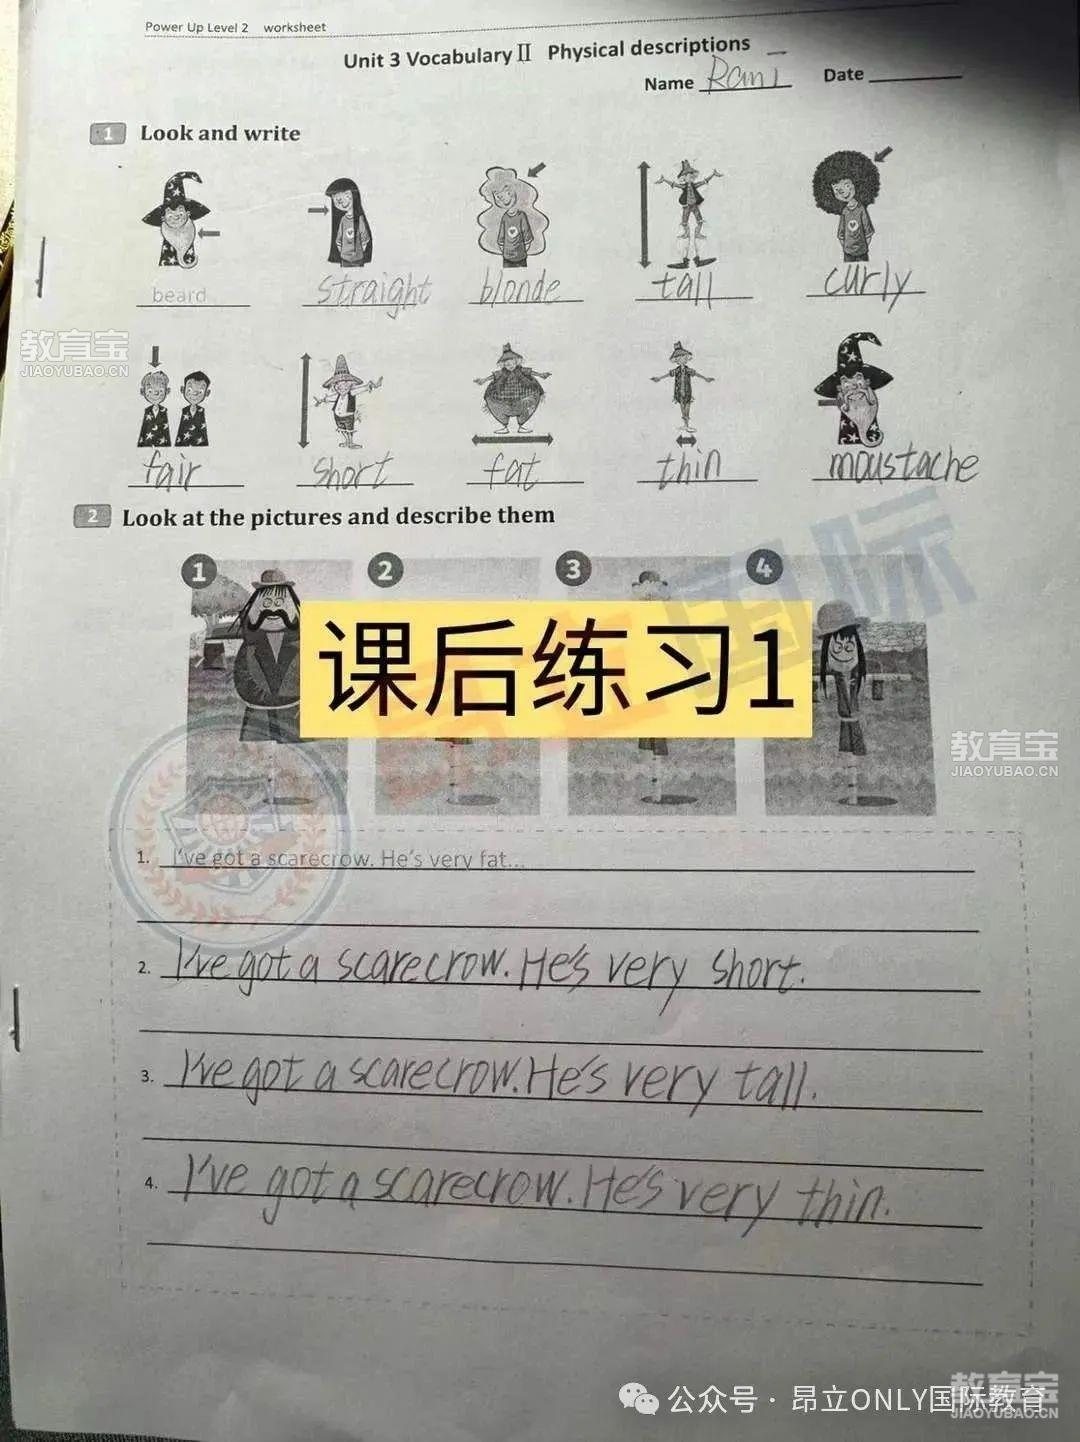 Power Up Level 2 worksheet
Unit 3 Vocabulary II Physical descriptions
Name Rani Date
1 Look and write
beard straight blonde tall curly
教育宝
JIAOYUBAO.CN
fair short fat thin moustache
2 Look at the pictures and describe them
1 2 3 4
昂立国际
课后练习1
教育宝
JIAOYUBAO.CN
1. I've got a scarecrow. He's very fat...
2. I've got a scarecrow. He's very short.
3. I've got a scarecrow. He's very tall.
4. I've got a scarecrow. He's very thin.
教育宝
JIAOYUBAO.CN
公众号 · 昂立ONLY国际教育